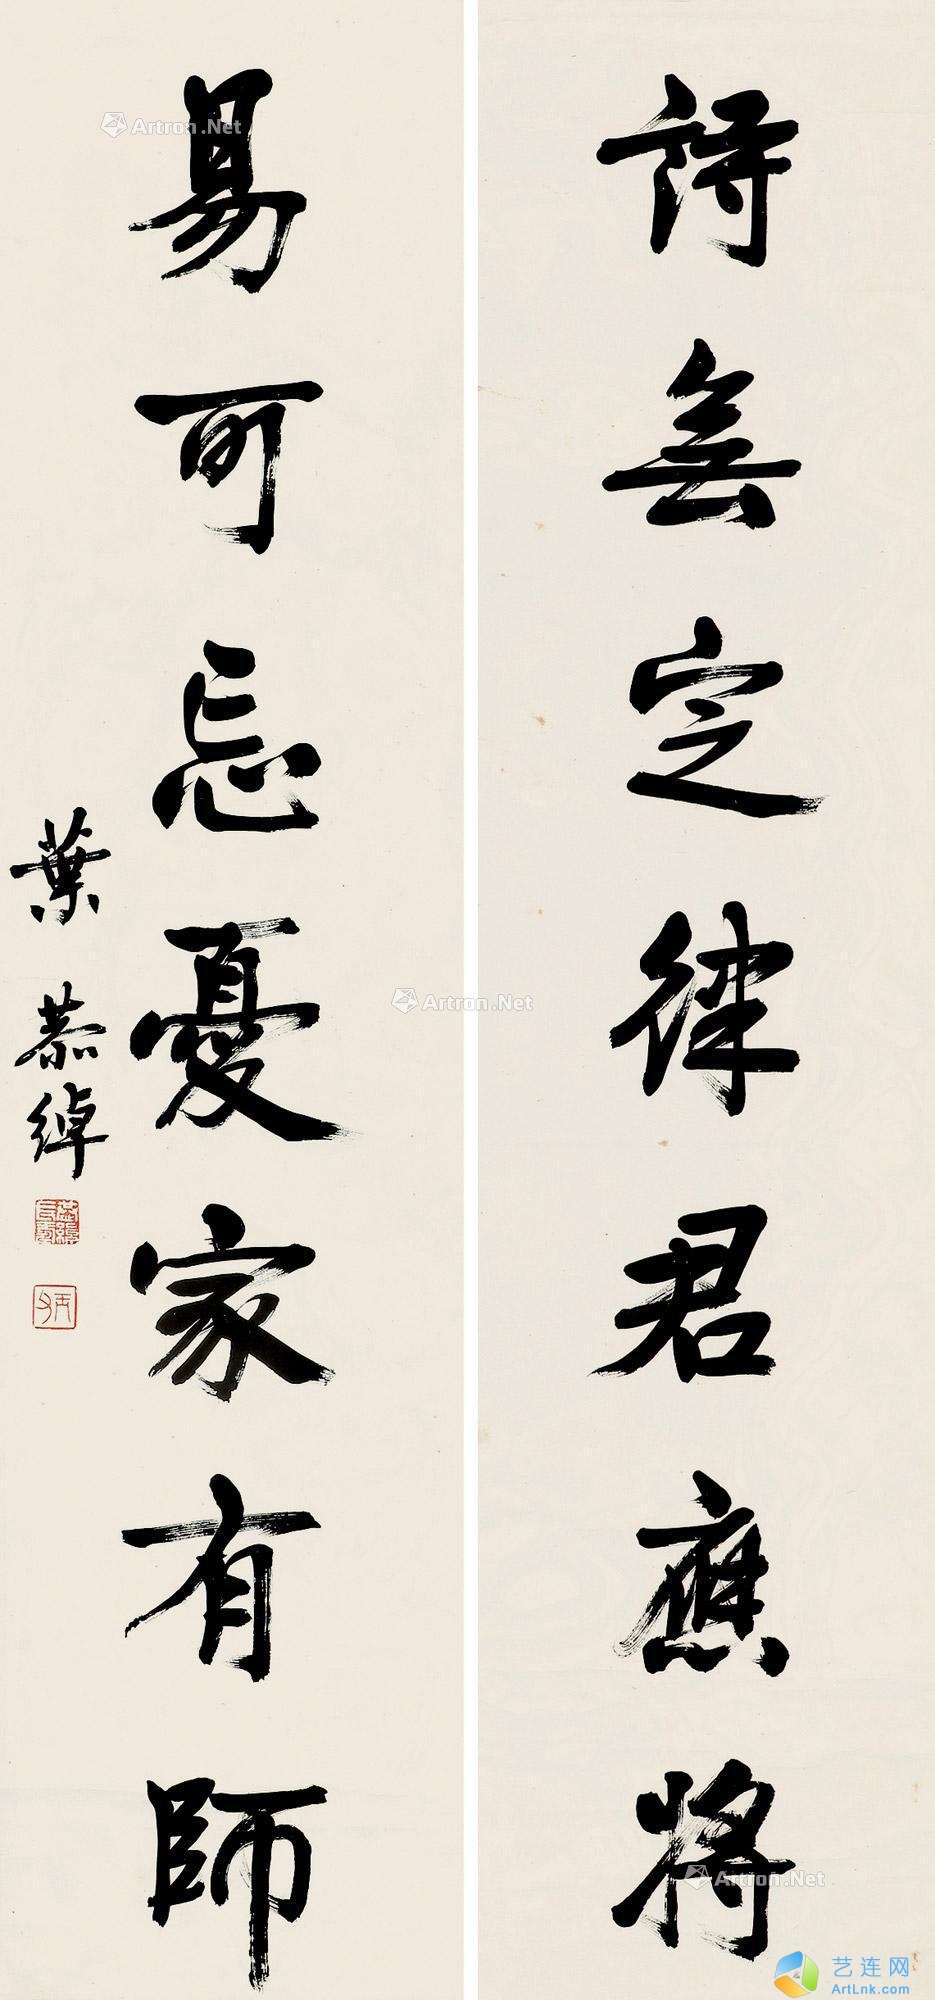 詩無定律君應將
易可忘憂家有師
葉恭綽
Artron.Net
Artron.Net
Artron.Net
艺连网
ArtLnk.com